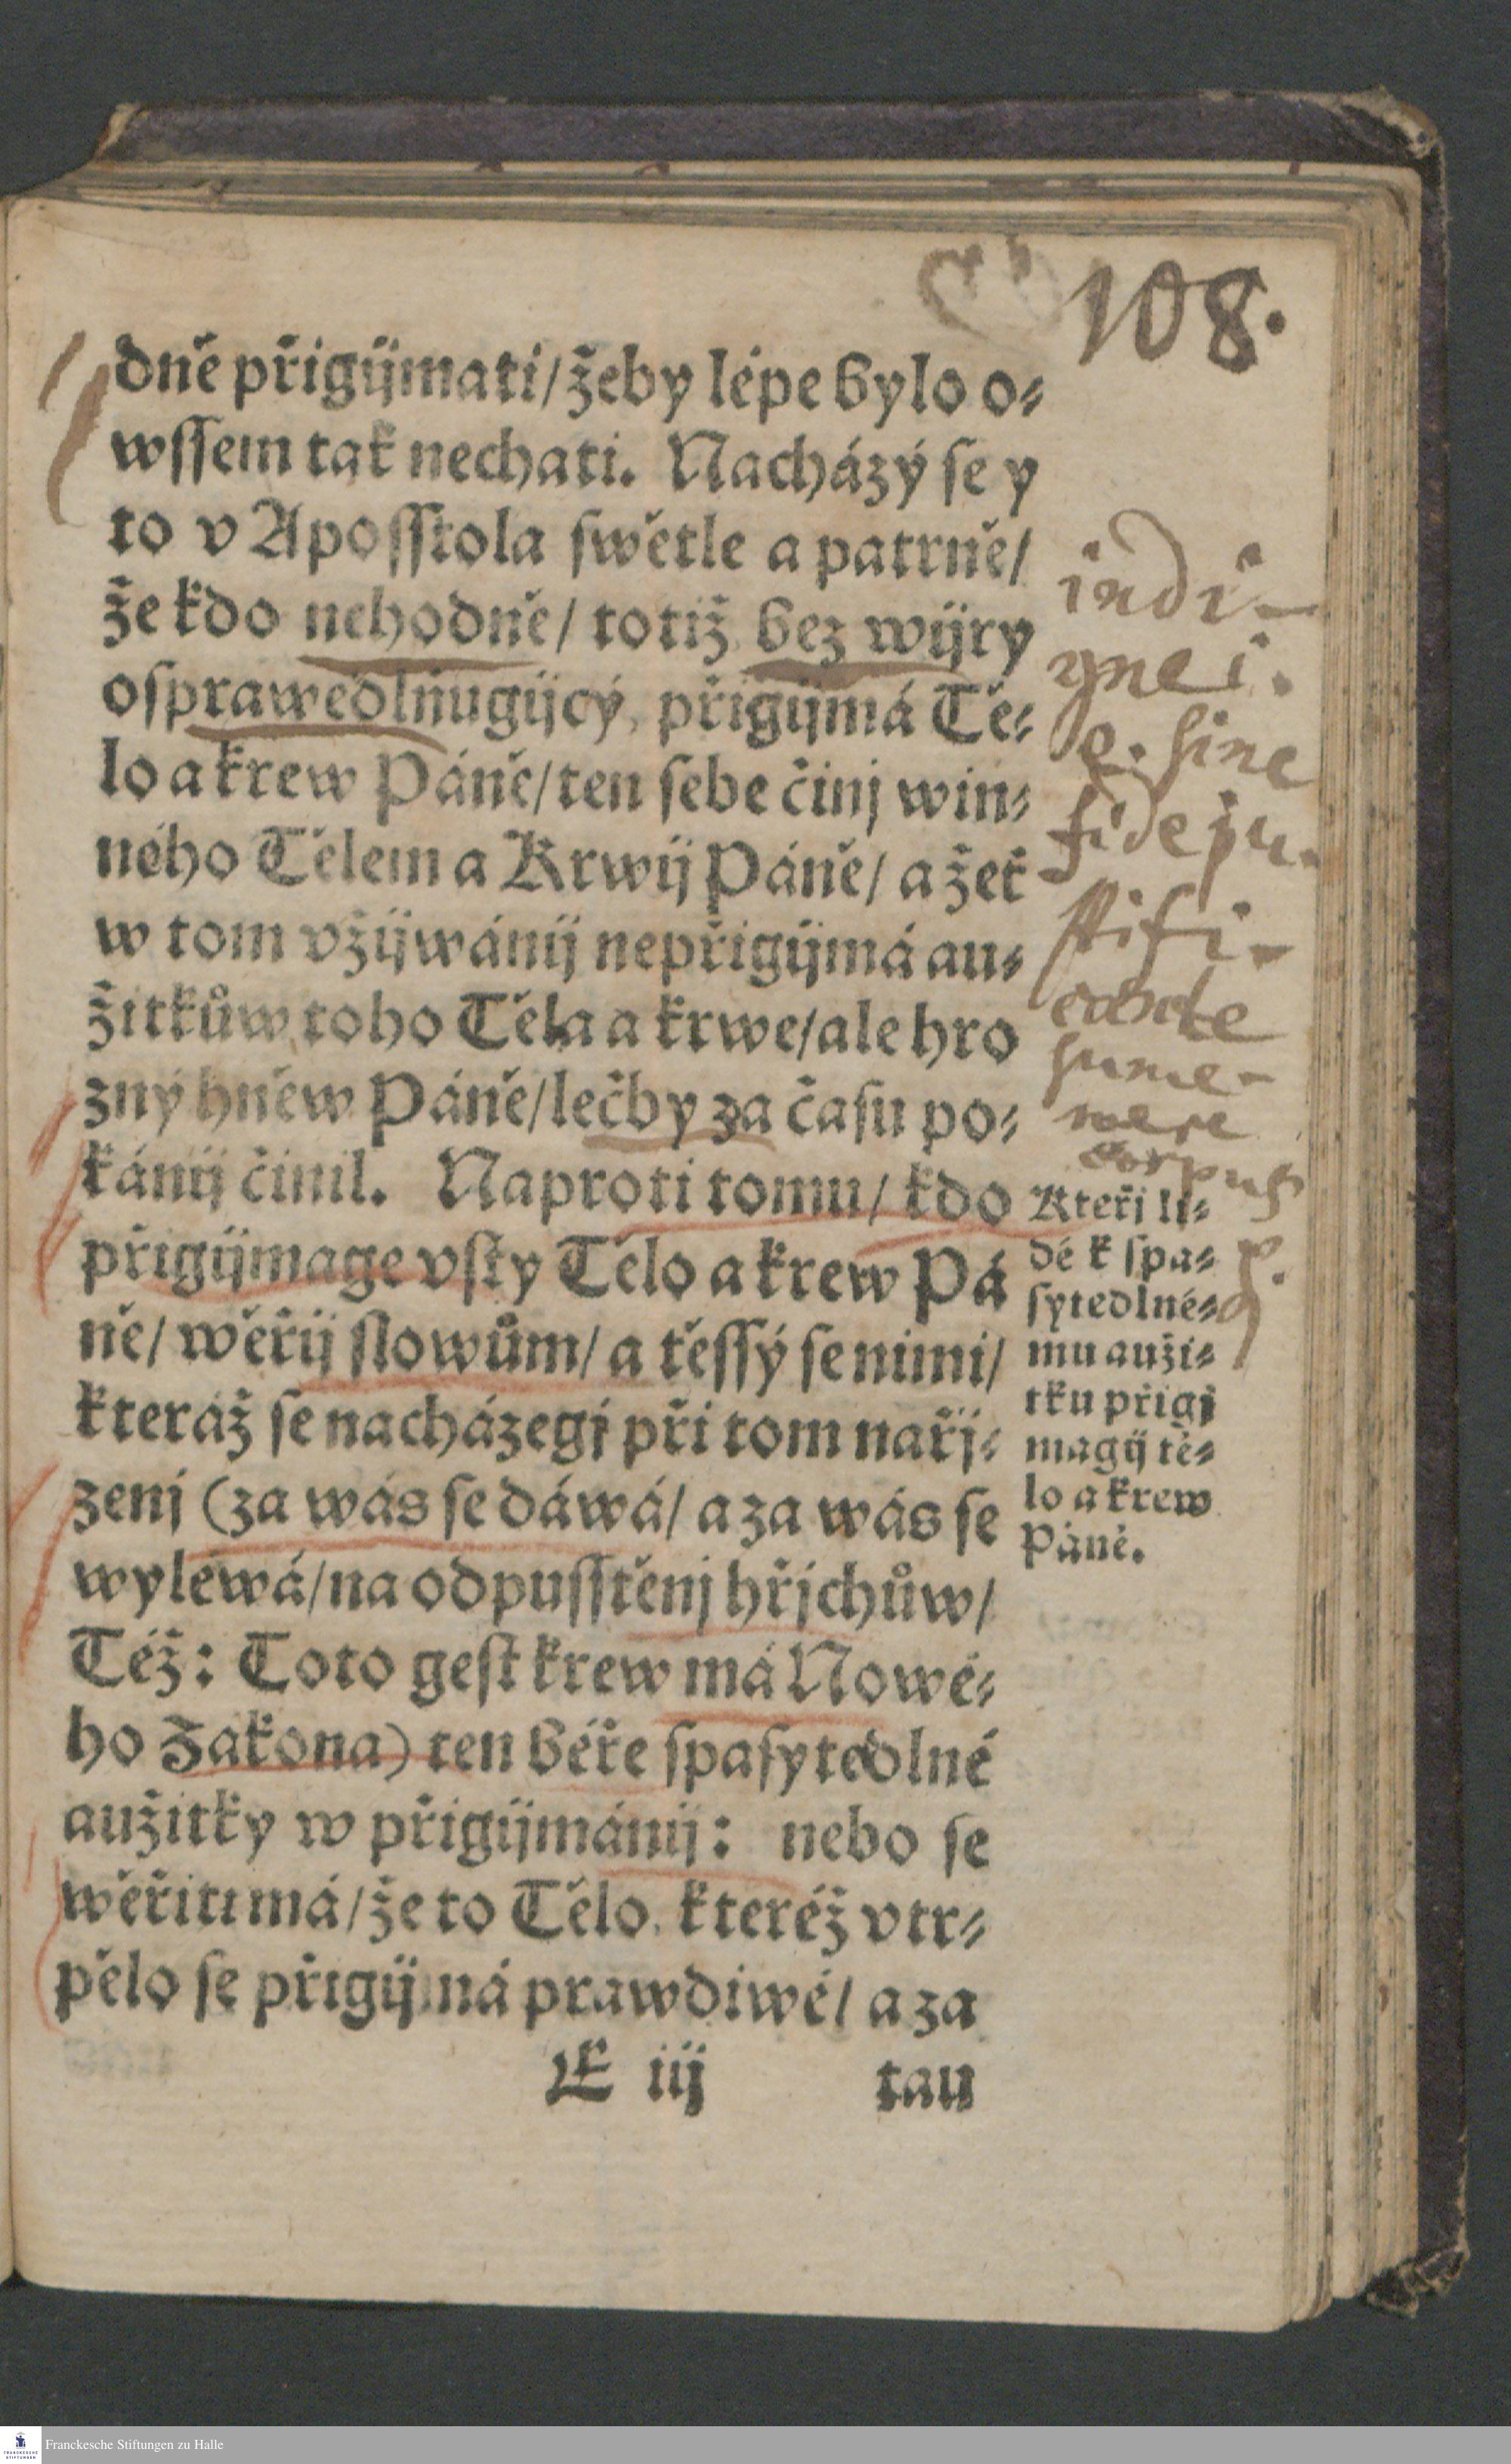 108.
dně přigijmati/žeby lépe bylo o⸗
wſſem tak nechati. Nacházý ſe y
to v Apoſſtola ſwětle a patrně/
že kdo nehodně/ totiž bez wijry
oſprawedlňugijcý, přigijmá Tě⸗
lo a krew Páně/ten ſebe činj win⸗
ného Tělem a Krwij Páně/ a žeť
w tom vžijwánij nepřigijmá au⸗
žitkůw toho Těla a krwe/ale hro
zný hněw Páně/lečby za čaſu po⸗
kánij činil. Naproti tomu/ kdo
přigijmage vſty Tělo a krew Pá
ně/ wěřij ſlowům/ a těſſý ſe nimi/
kteráž ſe nacházegj při tom nařj⸗
zenj (za wás ſe dáwá/ a za wás ſe
wyléwá/na odpuſſtěnj hřjchůw/
Též: Toto geſt krew má Nowé⸗
ho Zákona) ten béře ſpaſytedlné
aužitky w přigijmánij: nebo ſe
wěřiti má/že to Tělo, kteréž vtr⸗
pělo ſe přigijmá prawdiwě/ a za
E iij tau
indi-
gne i.
e. sine
fide ju-
stifi-
cante
sume-
corpus
Kteřj li⸗
dé k ſpa⸗
ſytedlné⸗
mu auži⸗
tku přigj
magij tě⸗
lo a krew
Páně.
Franckesche Stiftungen zu Halle
FRANCKESCHE
STIFTUNGEN